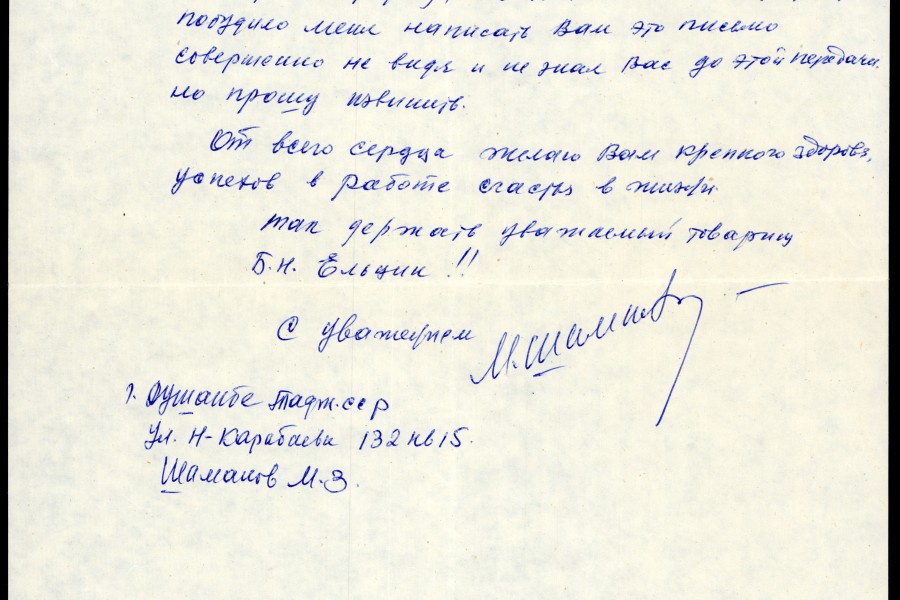 побудило меня написать Вам это письмо
совершенно не видя и не зная Вас до этой передачи.
но прошу извинить.
От всего сердца желаю Вам крепкого здоровя,
успехов в работе счастья в жизни.
так держать уважаемый товарищ
Б.Н. Ельцин!!
С уважением М.Шаманов
г. Душанбе Тадж.сср
ул. Н-Карабаева 132 кв 15.
Шаманов М.З.